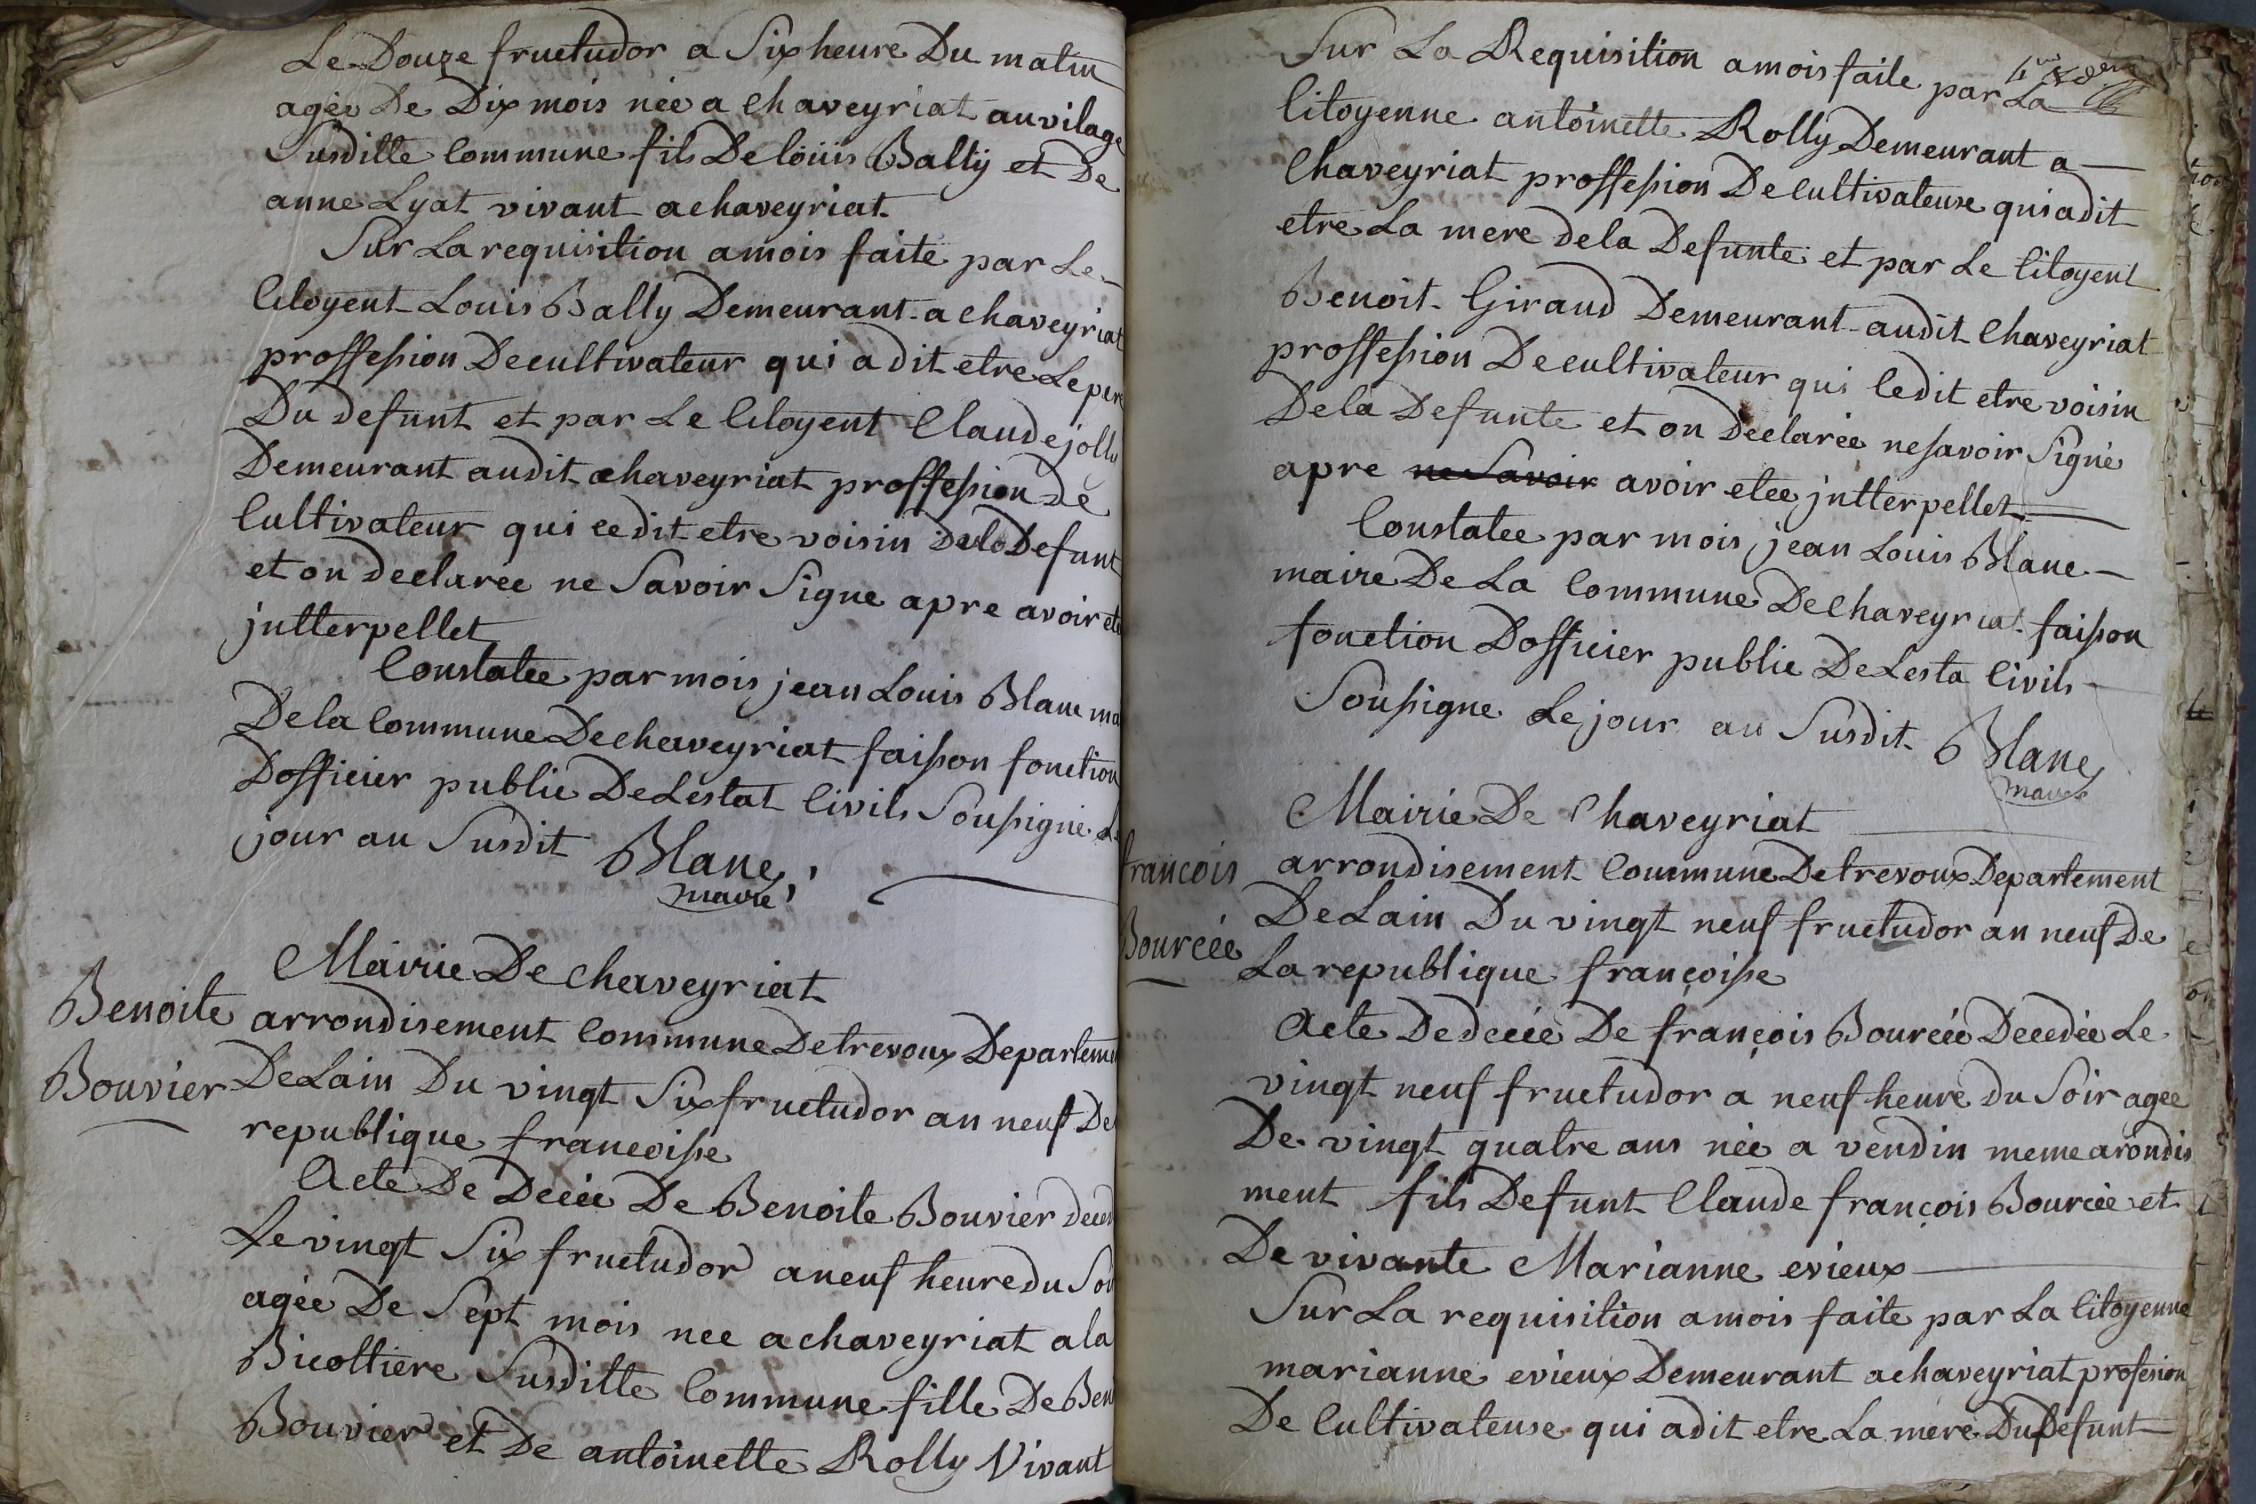 Le Douze fructudor a Six heure Du matin
agée De Dix mois née a Chaveyriat au vilage
Susditte Commune fils De loüis Bally et De
anne Lyat vivant a chaveyriat
Sur La requisition a mois faite par Le
Citoyent Louis Bally Demeurant a Chaveyriat
proffession De cultivateur qui a dit etre Le pere
Du defunt et par Le Citoyent Claude
Demeurant audit chaveyriat proffession De
Cultivateur qui ce dit etre voisin Defunt
et on declarée ne Savoir Signe apre avoir
jnterpellet
Constatee par mois jean Louis Blanc
De la Commune De chaveyriat faisson fonction
Dofficier public De Lestat Civils Soussigne Le
jour au Susdit Blanc
maire
Mairie De chaveyriat
Benoite
Bouvier
arrondisement Commune De trevoux Departeme
De Lain Du vingt Six fructudor an neuf De
republique francoisse
Acte De Decée De Benoite Bouvier
Le vingt Six fructudor a neuf heure du Soi
agée De Sept mois nee a chaveyriat a la
Bicottiere Susditte Commune fille De Ben
Bouvier et De antoinette Rolly Vivant
Sur La Requisition a mois faite par La
Citoyenne antoinette Rolly Demeurant a
Chaveyriat proffession De Cultivateuse qui a dit
etre La mere de la Defunte et par Le Citoyent
Benoit Giraud Demeurant audit Chaveyriat
proffession De cultivateur qui ledit etre voisin
De la Defunte et on Declarée ne savoir Signé
apre ne Savoir avoir etee jnterpellet
Constatee par mois jean Louis Blanc
maire De La Commune De Chaveyriat faisson
fonction Dofficier public De Lesta Civils
Soussigne Le jour au Susdit Blanc
maire
Mairie De Chaveyriat
francois
Bourcée
arrondisement Commune De trevoux Departement
De Lain Du vingt neuf fructudor an neuf De
La republique françoisse
Acte De decée De françois Bourcée Decedée Le
vingt neuf fructudor a neuf heure du Soir agee
De vingt quatre ans née a vendin meme arondis
ment fils Defunt Claude françois Bourcée et
De vivante Marianne evieux
Sur La requisition a mois faite par La Citoyenne
marianne evieux Demeurant a chaveyriat profesion
De Cultivateuse qui a dit etre La mere Du Defunt